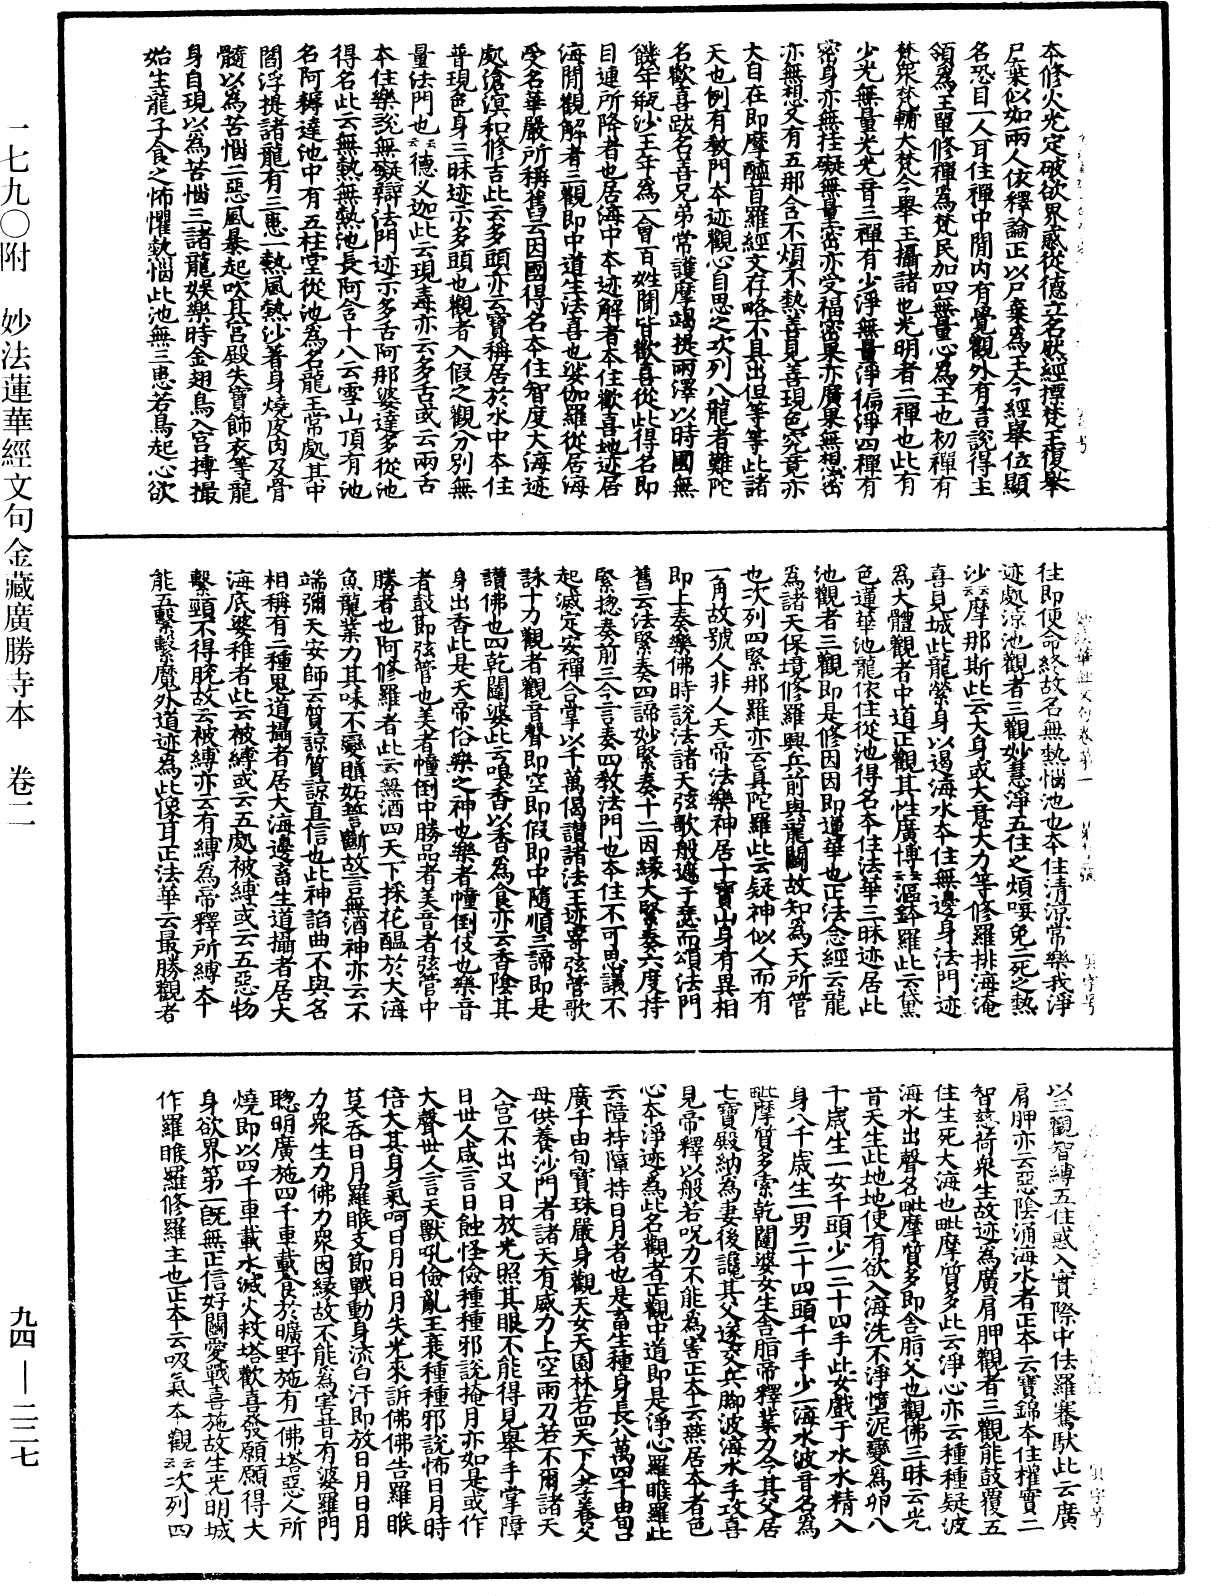 本修火光定破欲界惑從德立名故經標梵王復舉
尸棄似如兩人依釋論正以尸棄為王今經舉位顯
名恐目一人耳住禪中間內有覺觀外有言說得主
領為王單修禪為梵民加四無量心為王也初禪有
梵眾梵輔大梵今舉王攝諸也光明者二禪也此有
少光無量光光音三禪有少淨無量淨徧淨四禪有
密身亦無挂礙無量密亦受福密果亦廣果無想密
亦無想又有五那含不煩不熱善見善現色究竟亦
大自在即摩醯首羅經文存略不具出但等等此諸
天也例有教門本迹觀心自思之次列八龍者難陀
名歡喜跋名善兄弟常護摩竭提雨澤以時國無
饑年瓶沙王年為一會百姓聞皆歡喜從此得名即
目連所降者也居海中本迹解者本住歡喜地迹居
海間觀解者三觀即中道生法喜也娑伽羅從居海
受名華嚴所稱舊云因國得名本住智度大海迹
處滄溟和修吉此云多頭亦云寶稱居於水中本住
普現色身三昧迹示多頭也觀者入假之觀分別無
量法門也云云德义迦此云現毒亦云多舌或云兩舌
本住樂說無礙辯法門迹示多舌阿那婆達多從池
得名此云無熱無熱池長阿含十八云雪山頂有池
名阿耨達池中有五柱堂從池為名龍王常處其中
閻浮提諸龍有三患一熱風熱沙著身燒皮肉及骨
髓以為苦惱二惡風暴起吹其宮殿失寶飾衣等龍
身自現以為苦惱三諸龍娛樂時金翅鳥入宮搏撮
始生龍子食之怖懼熱惱此池無三患若鳥起心欲
往即便命終故名無熱惱池也本住清涼常樂我淨
迹處涼池觀者三觀妙慧淨五住之煩㗋免二死之熱
沙云云摩那斯此云大身或大意大力等修羅排海淹
喜見城此龍縈身以遏海水本住無邊身法門迹
為大體觀者中道正觀其性廣博云云漚鉢羅此云黛
色蓮華池龍依住從池得名本住法華三昧迹居此
池觀者三觀即是修因因即蓮華也正法念經云龍
為諸天保境修羅興兵前與龍鬭故知為天所管
也次列四緊那羅亦云真陀羅此云疑神似人而有
一角故號人非人天帝法樂神居十寶山身有異相
即上奏樂佛時說法諸天弦歌般遮于瑟而頌法門
舊云法緊奏四諦妙緊奏十二因緣大緊奏六度持
緊揔奏前三今言奏四教法門也本住不可思議不
起滅定安禪合掌以千萬偈讚諸法王迹寄弦管歌
詠十力觀者觀音聲即空即假即中隨順三諦即是
讚佛也四乾闥婆此云嗅香以香為食亦云香陰其
身出香此是天帝俗樂之神也樂者幢倒伎也樂音
者鼓節弦管也美者幢倒中勝品者美音者弦管中
勝者也阿修羅者此云無酒四天下採花醞於大海
魚龍業力其味不變瞋妬誓斷故言無酒神亦云不
端彌天安師云質諒質諒直信也此神諂曲不與名
相稱有二種鬼道攝者居大海邊畜生道攝者居大
海底婆稚者此云被縛或云五處被縛或云五惡物
繫頸不得脫故云被縛亦云有縛為帝釋所縛本
能五繫繫魔外道迹為此像耳正法華云最勝觀者
以三觀智縛五住惑入實際中佉羅騫馱此云廣
肩胛亦云惡陰涌海水者正本云寶錦本住權實二
智慈荷眾生故迹為廣肩胛觀者三觀能鼓覆五
住生死大海也毗摩質多此云淨心亦云種種疑波
海水出聲名毗摩質多即舍脂父也觀佛三昧云光
音天生此地地使有欲入海洗不淨墮泥變為卵八
千歲生一女千頭少一二十四手此女戲于水水精入
身八千歲生一男二十四頭千手少一海水波音名為
毗摩質多索乾闥婆女生舍脂帝釋業力令其父居
七寶殿納為妻後讒其父遂交兵脚波海水手攻喜
見帝釋以般若呪力不能為害正本云燕居本者色
心本淨迹為此名觀者正觀中道即是淨心羅睺羅此
云障持障持日月者也是畜生種身長八萬四千由旬口
廣千由旬寶珠嚴身觀天女天園林若四天下人孝養父
母供養沙門者諸天有威力上空雨刀若不爾諸天
入宮不出又日放光照其眼不能得見舉手掌障
日世人咸言日蝕怪儉種種邪說掩月亦如是或作
大聲世人言天獸吼儉亂王衰種種邪說怖日月時
倍大其身氣呵日月日月失光來訴佛佛告羅睺
莫吞日月羅睺支節戰動身流白汗即放日月日月
力眾生力佛力眾因緣故不能為害昔有婆羅門
聰明廣施四千車載食於曠野施有一佛塔惡人所
燒即以四千車載水滅火救塔歡喜發願願得大
身欲界第一既無正信好鬭愛戰喜施故生光明城
作羅睺羅修羅主也正本云吸氣本觀云云次列四
一七九〇附 妙法蓮華經文句金藏廣勝寺本 卷二
九四—二二七